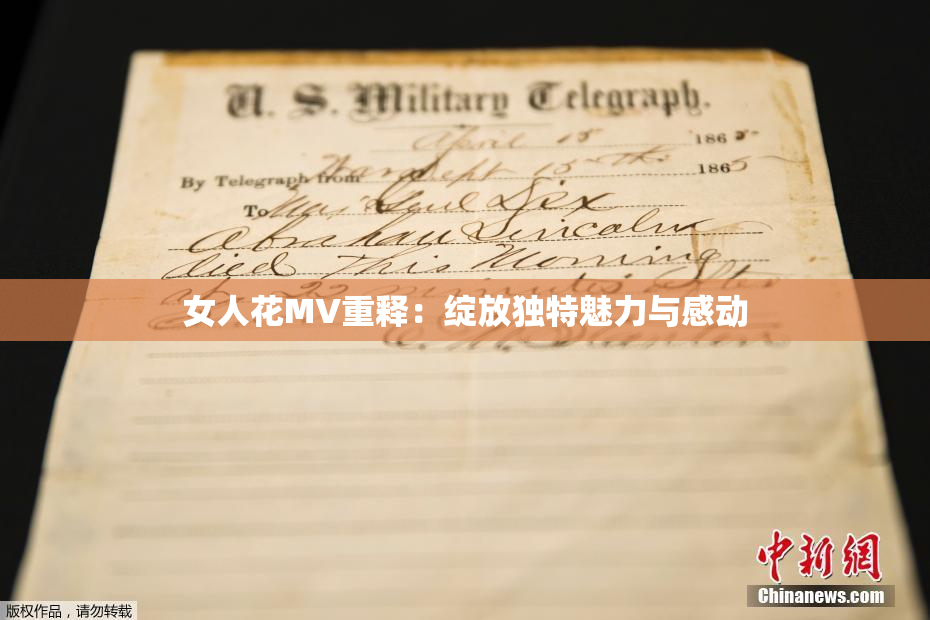 U. S. Military Telegraph.
April 15 1865
By Telegraph from War Dept 15th 1865
To Maj Genl Dix
Abraham Lincoln
died This Morning
at 22 minutes after
女人花MV重释：绽放独特魅力与感动
E. M. Stanton
中新网
Chinanews.com
版权作品，请勿转载